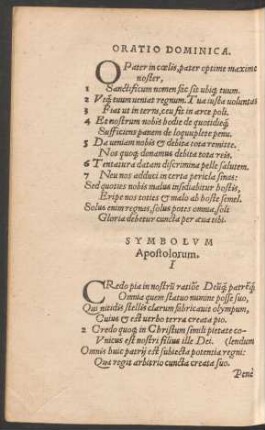 ORATIO DOMINICA.
O Pater in cœlis, pater optime maxime
noster,
1 Sanctificum nomen sic sit ubiq; tuum.
2 Utq; tuum ueniat regnum. Tua iusta uoluntas
3 Fiat ut in terris, ceu fit in arce poli.
4 Et nostrum nobis hodie de quotidieq;
Sufficiens panem de loquiplete penu.
5 Da ueniam nobis & debita tota remitte.
Nos quoq; donamus debita tota reis.
6 Tentatura datam discrimina pelle salutem.
7 Neu nos adduci in certa pericla sinas:
Sed quoties nobis malus insidiabitur hostis,
Eripe nos toties & malo ab hoste simel.
Solus enim regnas, solus potes omnia, soli
Gloria debetur cuncta per æua tibi.
SYMBOLVM
Apostolorum.
I
CRedo pia in nostri ratiõe Deliq; patrẽq;
Omnia quem statuo numine posse suo,
Qui nitidis stellis clarum fabricauit olympum,
Cuius & est uerbo terra creata pio.
2 Credo quoq; in Christum simili pietate co-
Vnicus est nostri filius ille Dei. (lendum
Omnis huic patrijs est subiecta potentia regni:
Qua regit arbitrio cuncta creata suo.
Penè